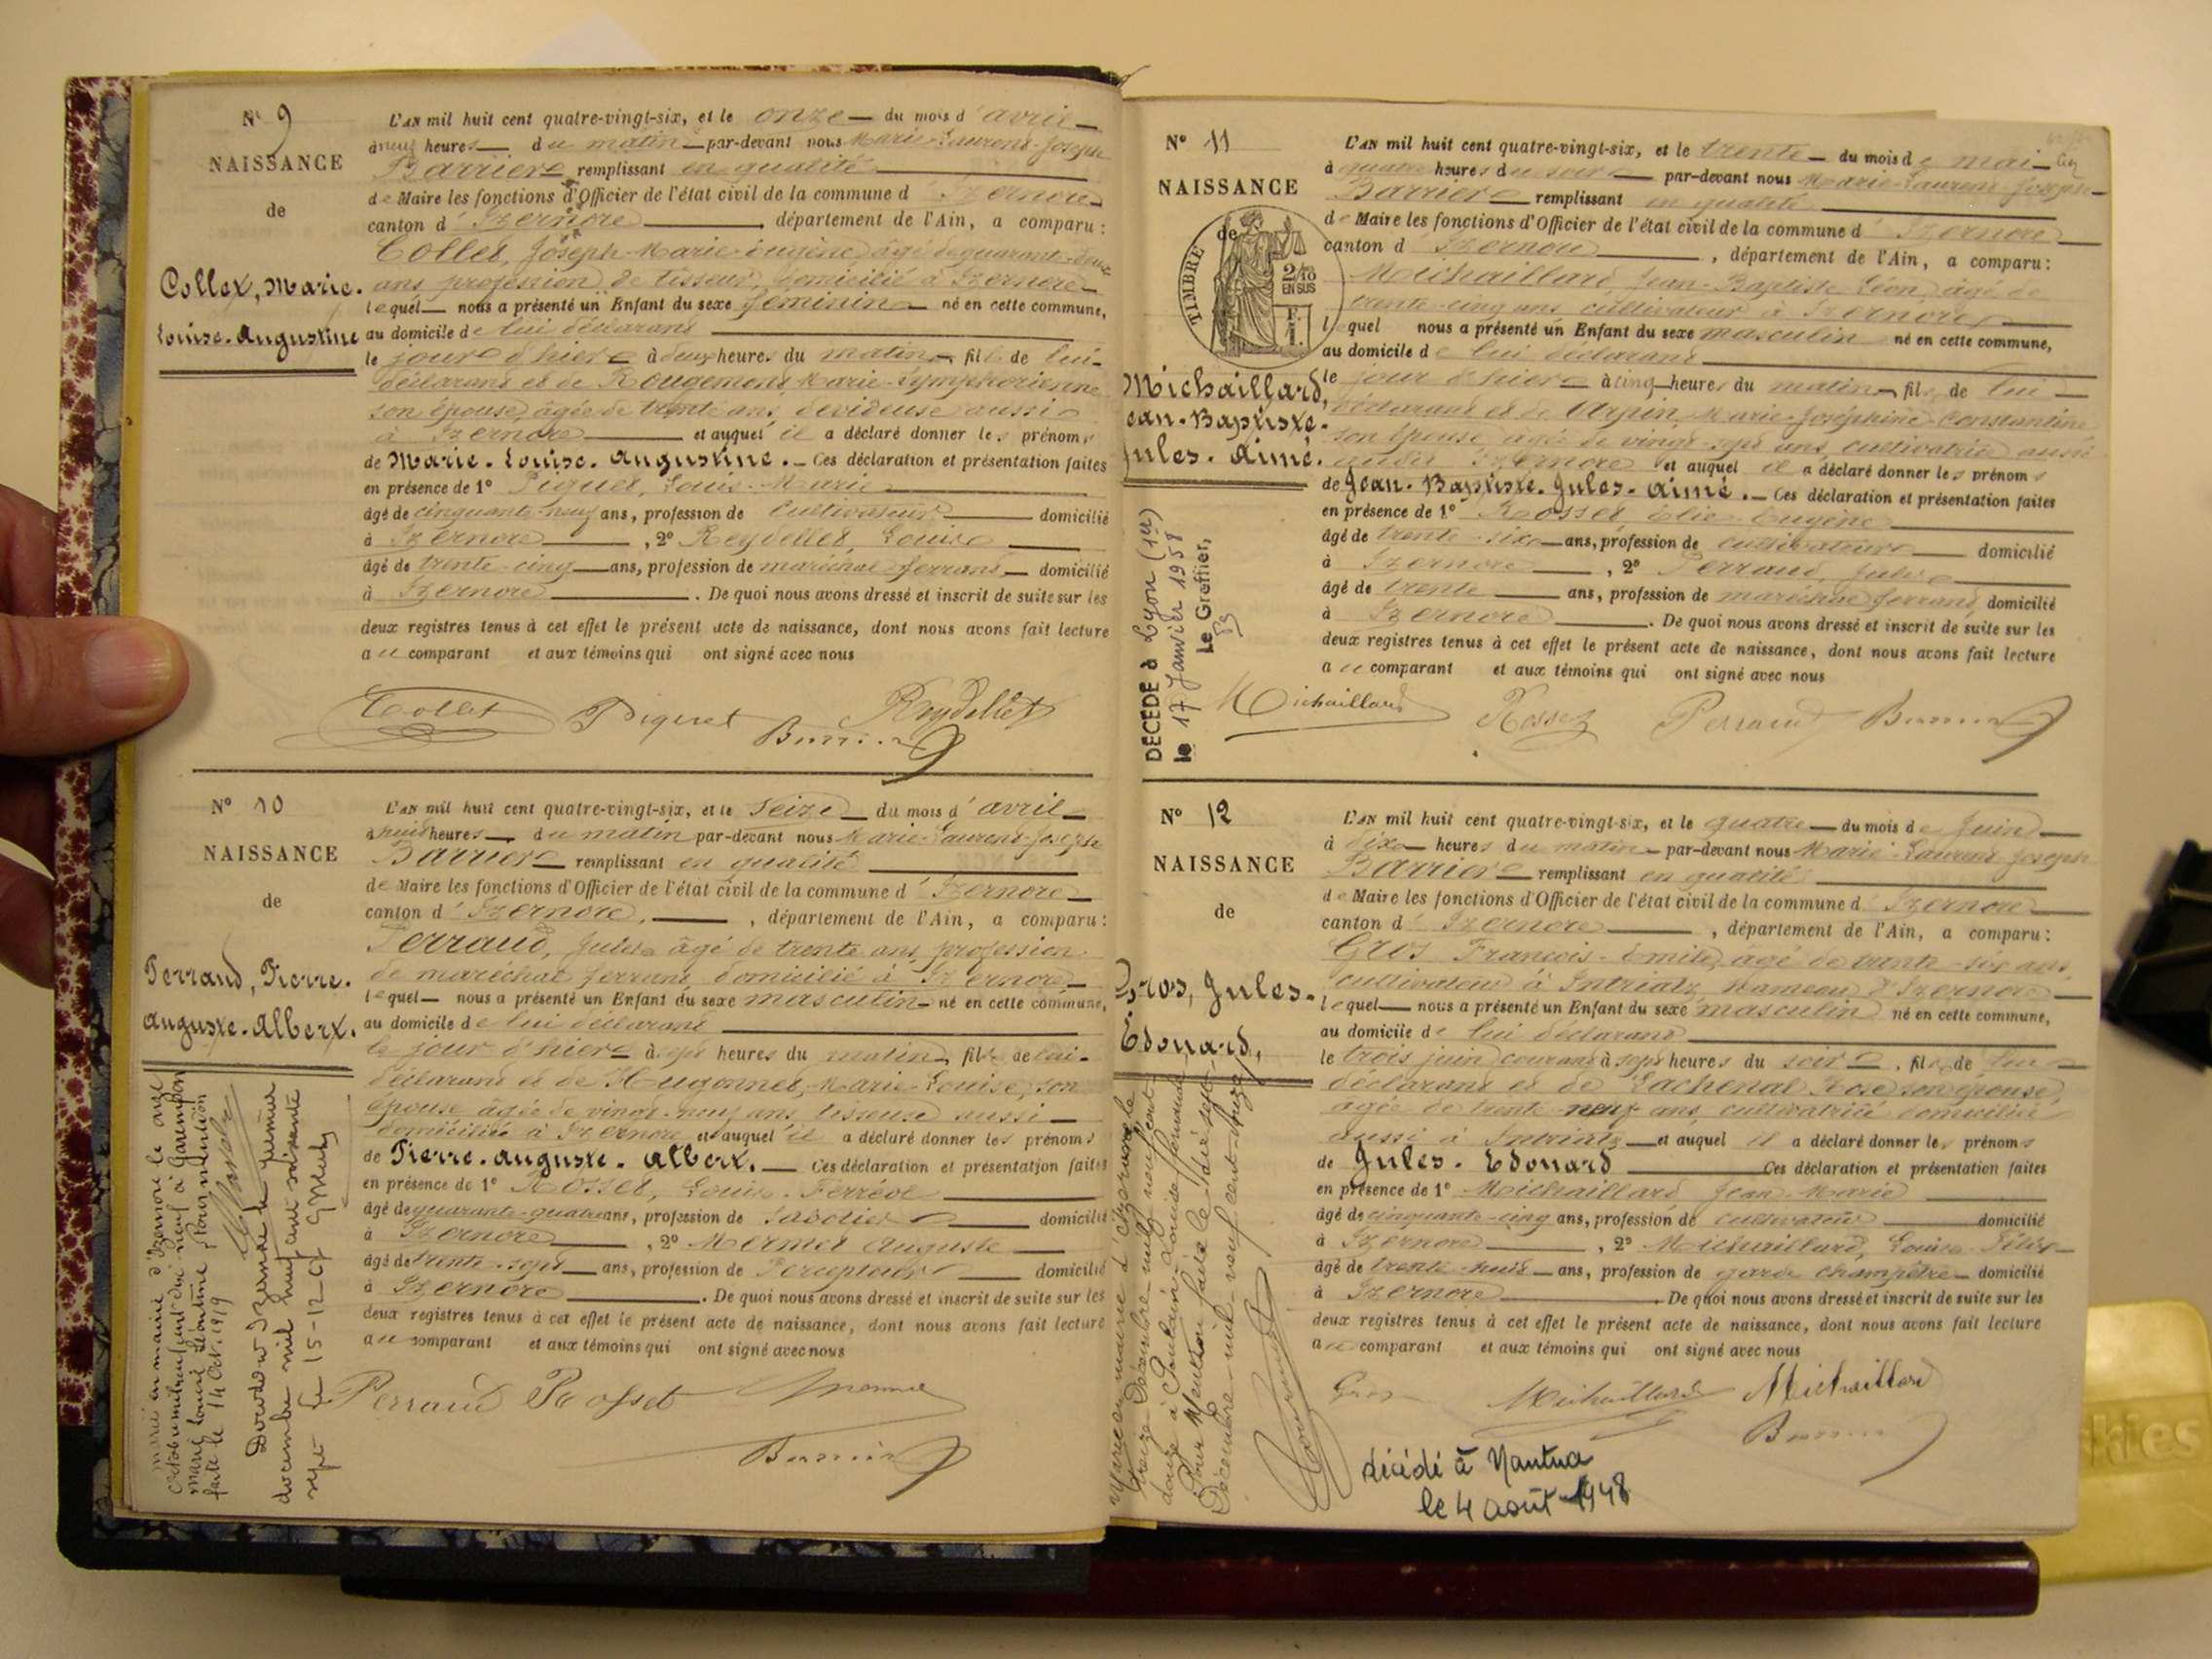 N° 9
NAISSANCE
de
Collet, Marie.
Louise. Augustine
L'AN mil huit cent quatre-vingt-six, et le onze du mois d'avril
à neuf heures du matin par-devant nous Marie-Laurent-Joseph
Barrière remplissant en qualité
de Maire les fonctions d'Officier de l'état civil de la commune d'Izernore
canton d'Izernore, département de l'Ain, a comparu :
Collet, Joseph-Marie-Eugène âgé de quarante-deux
ans profession de tisseur, domicilié à Izernore
lequel nous a présenté un Enfant du sexe féminin né en cette commune,
au domicile de lui déclarant
le jour d'hier à deux heures du matin, fille de lui-
déclarant et de Rougemont Marie-Symphorienne
son épouse, âgée de trente ans, dévideuse aussi
à Izernore et auquel il a déclaré donner les prénoms
de Marie. Louise. Augustine. Ces déclaration et présentation faites
en présence de 1° Piquet, Louis-Marie
âgé de cinquante-neuf ans, profession de cultivateur domicilié
à Izernore, 2° Reydellet, Louis
âgé de trente-cinq ans, profession de maréchal ferrant domicilié
à Izernore. De quoi nous avons dressé et inscrit de suite sur les
deux registres tenus à cet effet le présent acte de naissance, dont nous avons fait lecture
au comparant et aux témoins qui ont signé avec nous
Collet Piquet Reydellet
Barrière
N° 10
NAISSANCE
de
Perraud, Pierre.
Auguste. Albert.
marié en mairie d'Izernore le onze
octobre mil neuf cent dix neuf à
Marie Louise Clémentine Pour mention
faite le 14 Oct. 1919
Décédé à Izernore le premier
décembre mil neuf cent soixante
sept le 15-12-67
L'AN mil huit cent quatre-vingt-six, et le seize du mois d'avril
à huit heures du matin par-devant nous Marie-Laurent-Joseph
Barrière remplissant en qualité
de Maire les fonctions d'Officier de l'état civil de la commune d'Izernore
canton d'Izernore, département de l'Ain, a comparu :
Perraud, Jules âgé de trente ans profession
de maréchal ferrant domicilié à Izernore
lequel nous a présenté un Enfant du sexe masculin né en cette commune,
au domicile de lui déclarant
le jour d'hier à sept heures du matin, fils de lui-
déclarant et de Hugonnet, Marie-Louise, son
épouse âgée de vingt-neuf ans, tisseuse aussi
domiciliée à Izernore et auquel il a déclaré donner les prénoms
de Pierre. Auguste. Albert. Ces déclaration et présentation faites
en présence de 1° Rosset, Louis-Ferréol
âgé de quarante-quatre ans, profession de sabotier domicilié
à Izernore, 2° Mermet Auguste
âgé de trente-sept ans, profession de Percepteur domicilié
à Izernore. De quoi nous avons dressé et inscrit de suite sur les
deux registres tenus à cet effet le présent acte de naissance, dont nous avons fait lecture
au comparant et aux témoins qui ont signé avec nous
Perraud Rosset Mermet
Barrière
N° 11
NAISSANCE
de
TIMBRE
2/10
EN SUS
Michaillard,
Jean-Baptiste.
Jules. Aimé.
DÉCÉDÉ à Lyon (1er)
le 17 Janvier 1958
Le Greffier,
L'AN mil huit cent quatre-vingt-six, et le trente du mois de mai
à quatre heures du soir par-devant nous Marie-Laurent-Joseph
Barrière remplissant en qualité
de Maire les fonctions d'Officier de l'état civil de la commune d'Izernore
canton d'Izernore, département de l'Ain, a comparu :
Michaillard Jean-Baptiste Léon âgé de
trente-cinq ans cultivateur à Izernore
lequel nous a présenté un Enfant du sexe masculin né en cette commune,
au domicile de lui déclarant
le jour d'hier à cinq heures du matin, fils de lui
déclarant et de Arpin, Marie-Joséphine-Constantine
son épouse âgée de vingt-sept ans, cultivatrice aussi
Izernore et auquel il a déclaré donner les prénoms
de Jean-Baptiste. Jules. Aimé. Ces déclaration et présentation faites
en présence de 1° Rosset Elie-Eugène
âgé de trente-six ans, profession de cultivateur domicilié
à Izernore, 2° Perraud, Jules
âgé de trente ans, profession de maréchal ferrant domicilié
à Izernore. De quoi nous avons dressé et inscrit de suite sur les
deux registres tenus à cet effet le présent acte de naissance, dont nous avons fait lecture
au comparant et aux témoins qui ont signé avec nous
Michaillard Rosset Perraud Barrière
N° 12
NAISSANCE
de
Gros, Jules.
Edouard,
Marié en mairie d'Izernore le
treize Décembre mil neuf cent
douze à Louise
Pour Mention faite le dix sept
Décembre mil neuf cent douze
L'AN mil huit cent quatre-vingt-six, et le quatre du mois de Juin
à dix heures du matin par-devant nous Marie-Laurent Joseph
Barrière remplissant en qualité
de Maire les fonctions d'Officier de l'état civil de la commune d'Izernore
canton d'Izernore, département de l'Ain, a comparu :
Gros François-Emile, âgé de trente-six ans,
cultivateur à Intriatz hameau d'Izernore
lequel nous a présenté un Enfant du sexe masculin né en cette commune,
au domicile de lui déclarant
le trois juin courant à sept heures du soir, fils de lui
déclarant et de Lachenal Rose son épouse
âgée de trente-neuf ans, cultivatrice domiciliée
aussi à Intriatz et auquel il a déclaré donner les prénoms
de Jules. Edouard Ces déclaration et présentation faites
en présence de 1° Michaillard Jean-Marie
âgé de cinquante-cinq ans, profession de cultivateur domicilié
à Izernore, 2° Michaillard, Louis-Félix
âgé de trente-huit ans, profession de garde champêtre domicilié
à Izernore. De quoi nous avons dressé et inscrit de suite sur les
deux registres tenus à cet effet le présent acte de naissance, dont nous avons fait lecture
au comparant et aux témoins qui ont signé avec nous
Gros Michaillard Michaillard
Barrière
décédé à Nantua
le 4 août 1948
kies